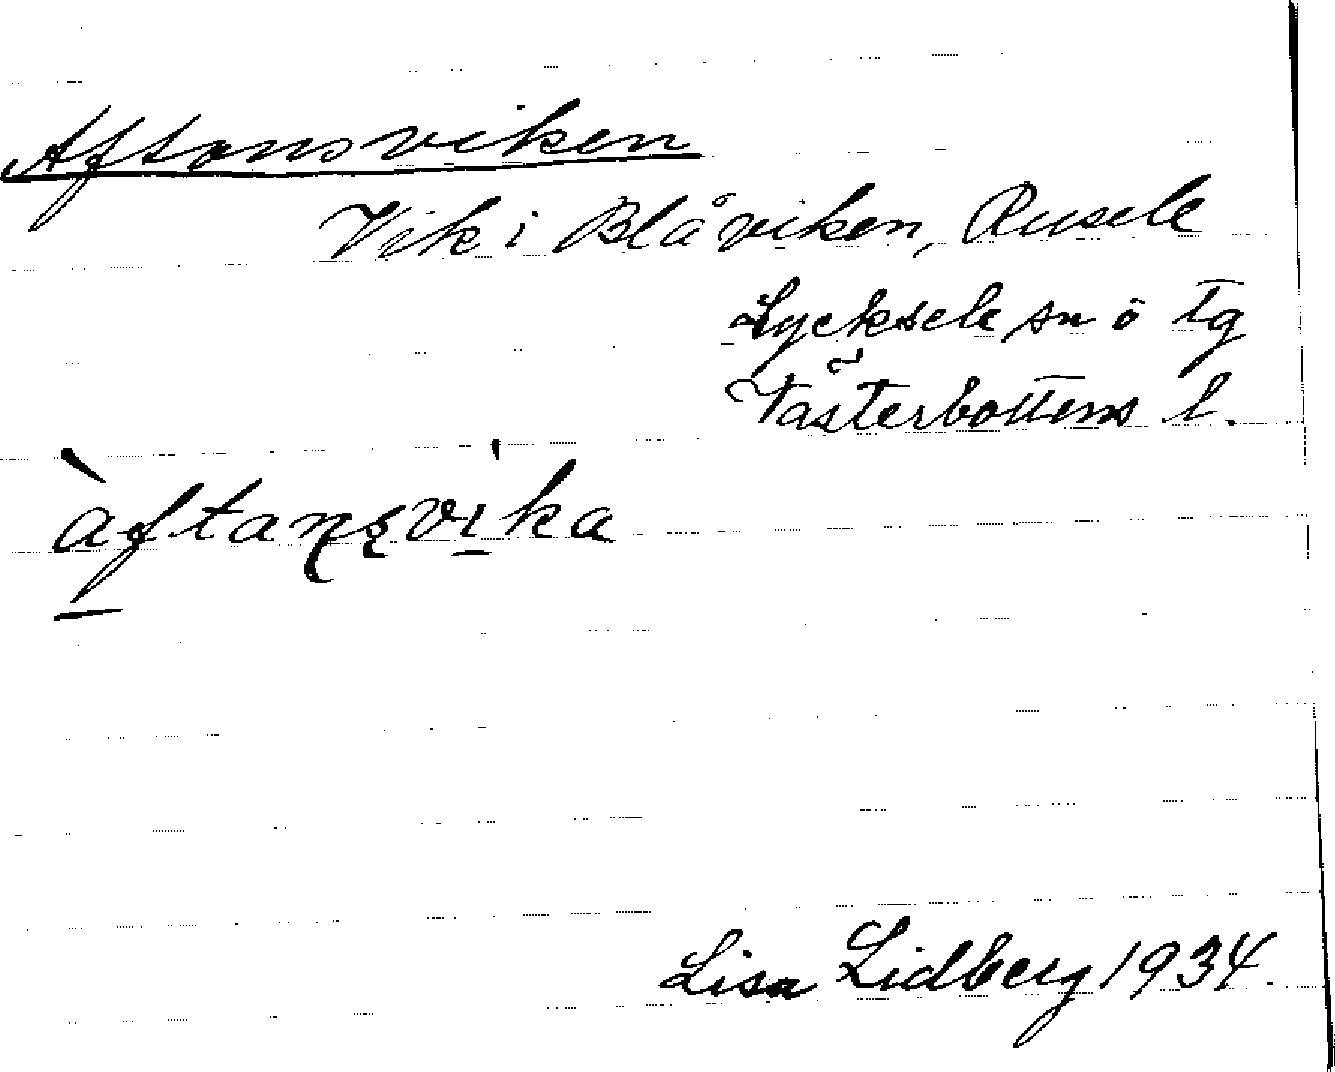 Aftonsviken
Vik i Blåviken, Rusele
Lycksele sn ö tg
Västerbottens l.
àftansvi̍ka
Lisa Lidberg 1934.